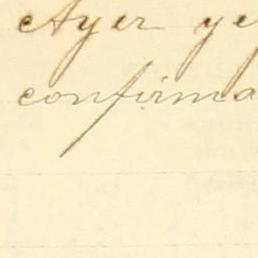 Ayer ye
confirma